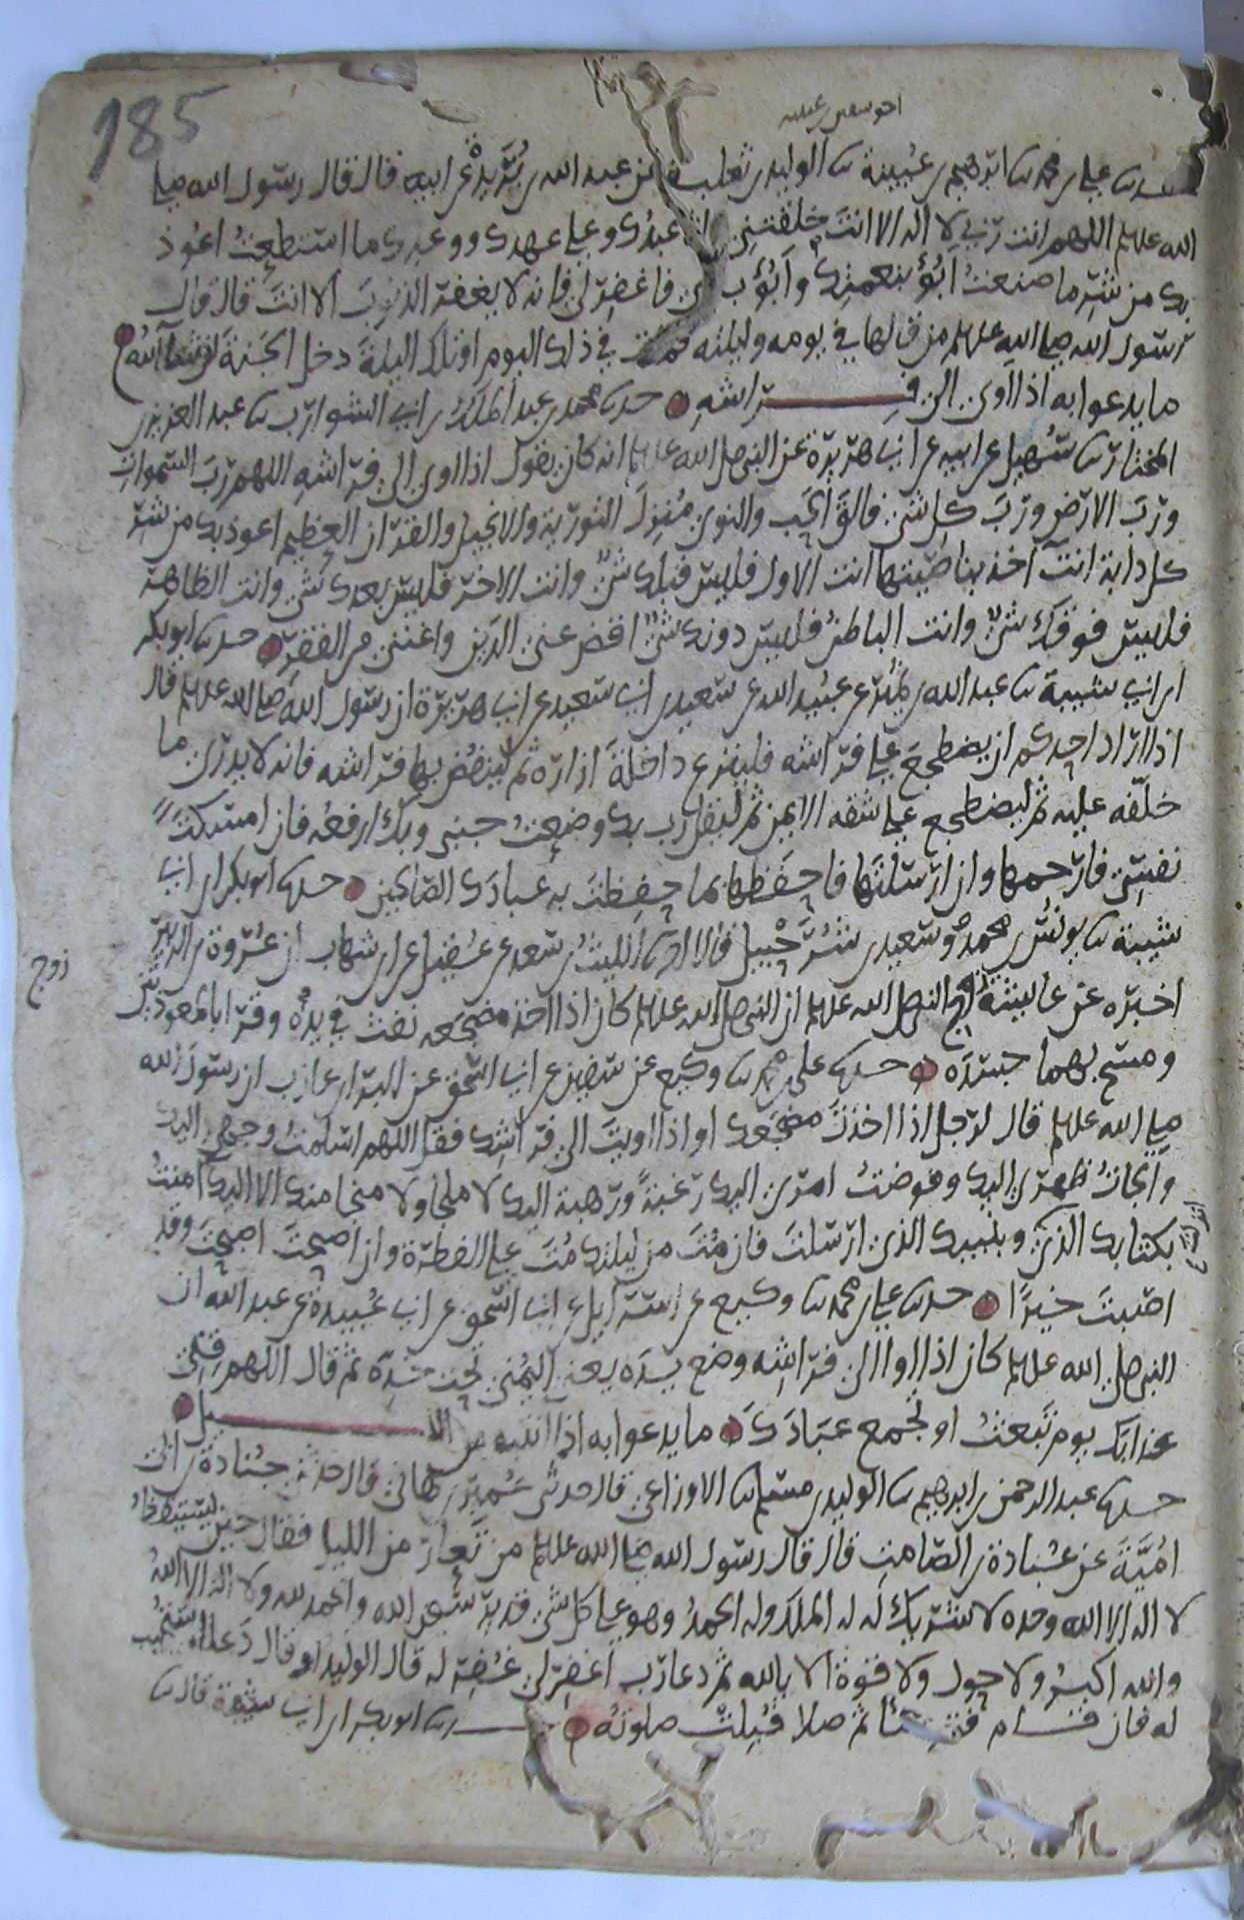 185
اخو سفين بن عيينة
حدثنا علي بن محمد ثنا ابرهيم بن عيينة ثنا الوليد بن ثعلبة عن عبد الله بن بريدة عن ابيه قال قال رسول الله صلى
الله عليه وسلم اللهم انت ربي لا اله الا انت خلقتني وانا عبدك وعلى عهدك ووعدك ما استطعت اعوذ
بك من شر ما صنعت ابوء بنعمتك وابوء بذنبي فاغفر لي فانه لا يغفر الذنوب الا انت قال قال
رسول الله صلى الله عليه وسلم من قالها في يومه وليلته فمات في ذلك اليوم او تلك الليلة دخل الجنة ان شا الله
ما يدعوا به اذا اوى الى فراشه حدثنا محمد بن عبد الملك بن ابي الشوارب ثنا عبد العزيز بن
المختار ثنا سهيل عن ابيه عن ابي هريرة عن النبي صلى الله عليه وسلم انه كان يقول اذا اوى الى فراشه اللهم رب السموات
ورب الارض ورب كل شي فالق الحب والنوى منزل التورية والانجيل والقران العظيم اعوذ بك من شر
كل دابة انت آخذ بناصيتها انت الاول فليس قبلك شي وانت الاخر فليس بعدك شي وانت الظاهر
فليس فوقك شي وانت الباطن فليس دونك شي اقض عني الدين واغنني من الفقر حدثنا ابو بكر
ابن ابي شيبة ثنا عبد الله بن نمير عن عبيد الله عن سعيد بن ابي سعيد عن ابي هريرة ان رسول الله صلى الله عليه وسلم قال
اذا اراد احدكم ان يضطجع على فراشه فلينزع داخلة ازاره ثم لينفض بها فراشه فانه لا يدري ما
خلفه عليه ثم ليضطجع على شقه الايمن ثم ليقل رب بك وضعت جنبي وبك ارفعه فان امسكت
نفسي فارحمها وان ارسلتها فاحفظها بما حفظت به عبادك الصالحين حدثنا ابو بكر بن ابي
شيبة ثنا يونس بن محمد وسعيد بن شرحبيل قالا انا الليث بن سعد عن عقيل عن ابن شهاب ان عروة بن الزبير
زوج
اخبره عن عايشة زوج النبي صلى الله عليه وسلم ان النبي صلى الله عليه وسلم كان اذا اخذ مضجعه نفث في يده وقرا بالمعوذتين
ومسح بهما جسده حدثنا علي بن محمد ثنا وكيع عن سفين عن ابي اسحق عن البرا بن عازب ان رسول الله
صلى الله عليه وسلم قال لرجل اذا اخذت مضجعك او اذا اويت الى فراشك فقل اللهم اسلمت وجهي اليك
والجات ظهري اليك وفوضت امري اليك رغبة ورهبة اليك لا ملجا ولا منجا منك الا اليك امنت
انزلت
بكتابك الذي وبنبيك الذي ارسلت فان مت من ليلتك مت على الفطرة وان اصبحت اصبحت وقد
اصبت خيرا حدثنا علي بن محمد ثنا وكيع عن اسرايل عن ابي اسحق عن ابي عبيدة عن عبد الله ان
النبي صلى الله عليه وسلم كان اذا اوا الى فراشه وضع يده يعني اليمنى تحت خده ثم قال اللهم قني
عذابك يوم تبعث او تجمع عبادك ما يدعوا به اذا انتبه من الليل
حدثنا عبد الرحمن بن ابرهيم ثنا الوليد بن مسلم ثنا الاوزاعي قال حدثني عمير بن هاني قال حدثني جنادة بن ابي
امية عن عبادة بن الصامت قال قال رسول الله صلى الله عليه وسلم من تعار من الليل فقال حين يستيقظ
لا اله الا الله وحده لا شريك له له الملك وله الحمد وهو على كل شي قدير سبحن الله والحمد لله ولا اله الا الله
والله اكبر ولا حول ولا قوة الا بالله ثم دعا رب اغفر لي غفر له قال الوليد او قال دعا استجيب
له فان قام فتوضا ثم صلا قبلت صلوته حدثنا ابو بكر بن ابي شيبة قال ثنا